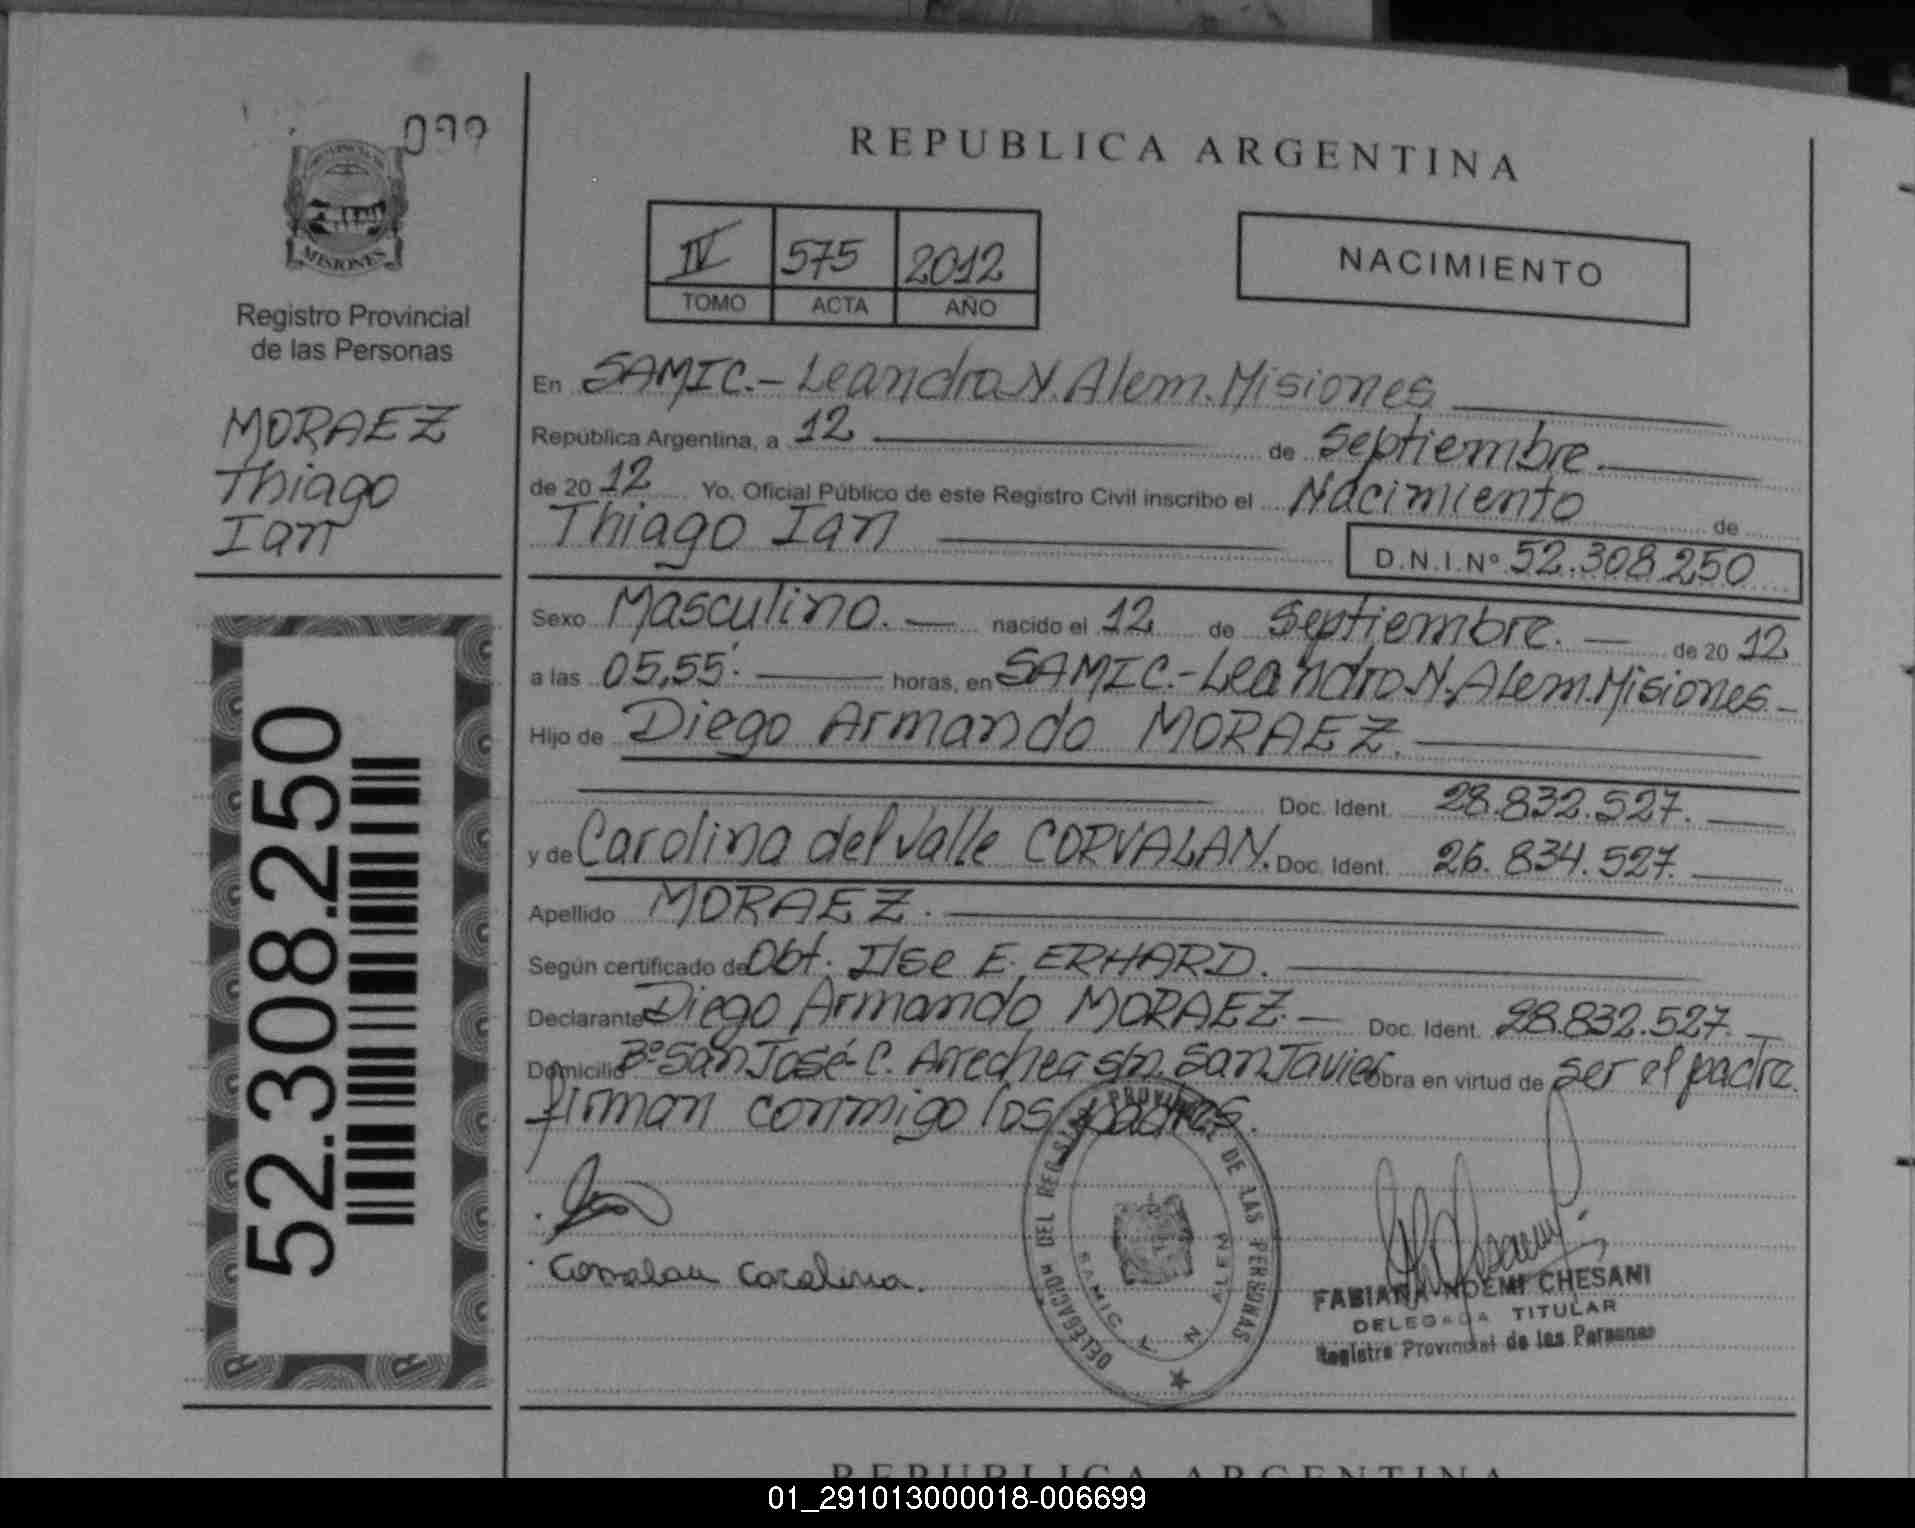 099
MISIONES
Registro Provincial
de las Personas
MORAEZ
Thiago
Ian
52.308.250
REPUBLICA ARGENTINA
IV 575 2012
TOMO ACTA AÑO
NACIMIENTO
En SAMIC.- Leandro N. Alem. Misiones
República Argentina, a 12 de Septiembre.
de 20 12 Yo, Oficial Público de este Registro Civil inscribo el Nacimiento de
Thiago Ian
D.N.I.Nº 52.308.250
Sexo Masculino. nacido el 12 de Septiembre. de 20 12
a las 05,55'. horas, en SAMIC.- Leandro N. Alem. Misiones.-
Hijo de Diego Armando MORAEZ.
Doc. Ident. 28.832.527.
y de Carolina del Valle CORVALAN. Doc. Ident. 26.834.527.
Apellido MORAEZ.
Según certificado de Obt. Ilse E. ERHARD.
Declarante Diego Armando MORAEZ.- Doc. Ident. 28.832.527.
Domicilio Bº San José- C. Arrechea s/n. San Javier Obra en virtud de ser el padre.
firman conmigo los padres.
Corvalan Carolina.
DELEGACION DEL REGISTRO PROVINCIAL DE LAS PERSONAS
SAMIC L. N. ALEM
FABIANA NOEMI CHESANI
DELEGADA TITULAR
Registro Provincial de las Personas
REPUBLICA ARGENTINA
01_291013000018-006699